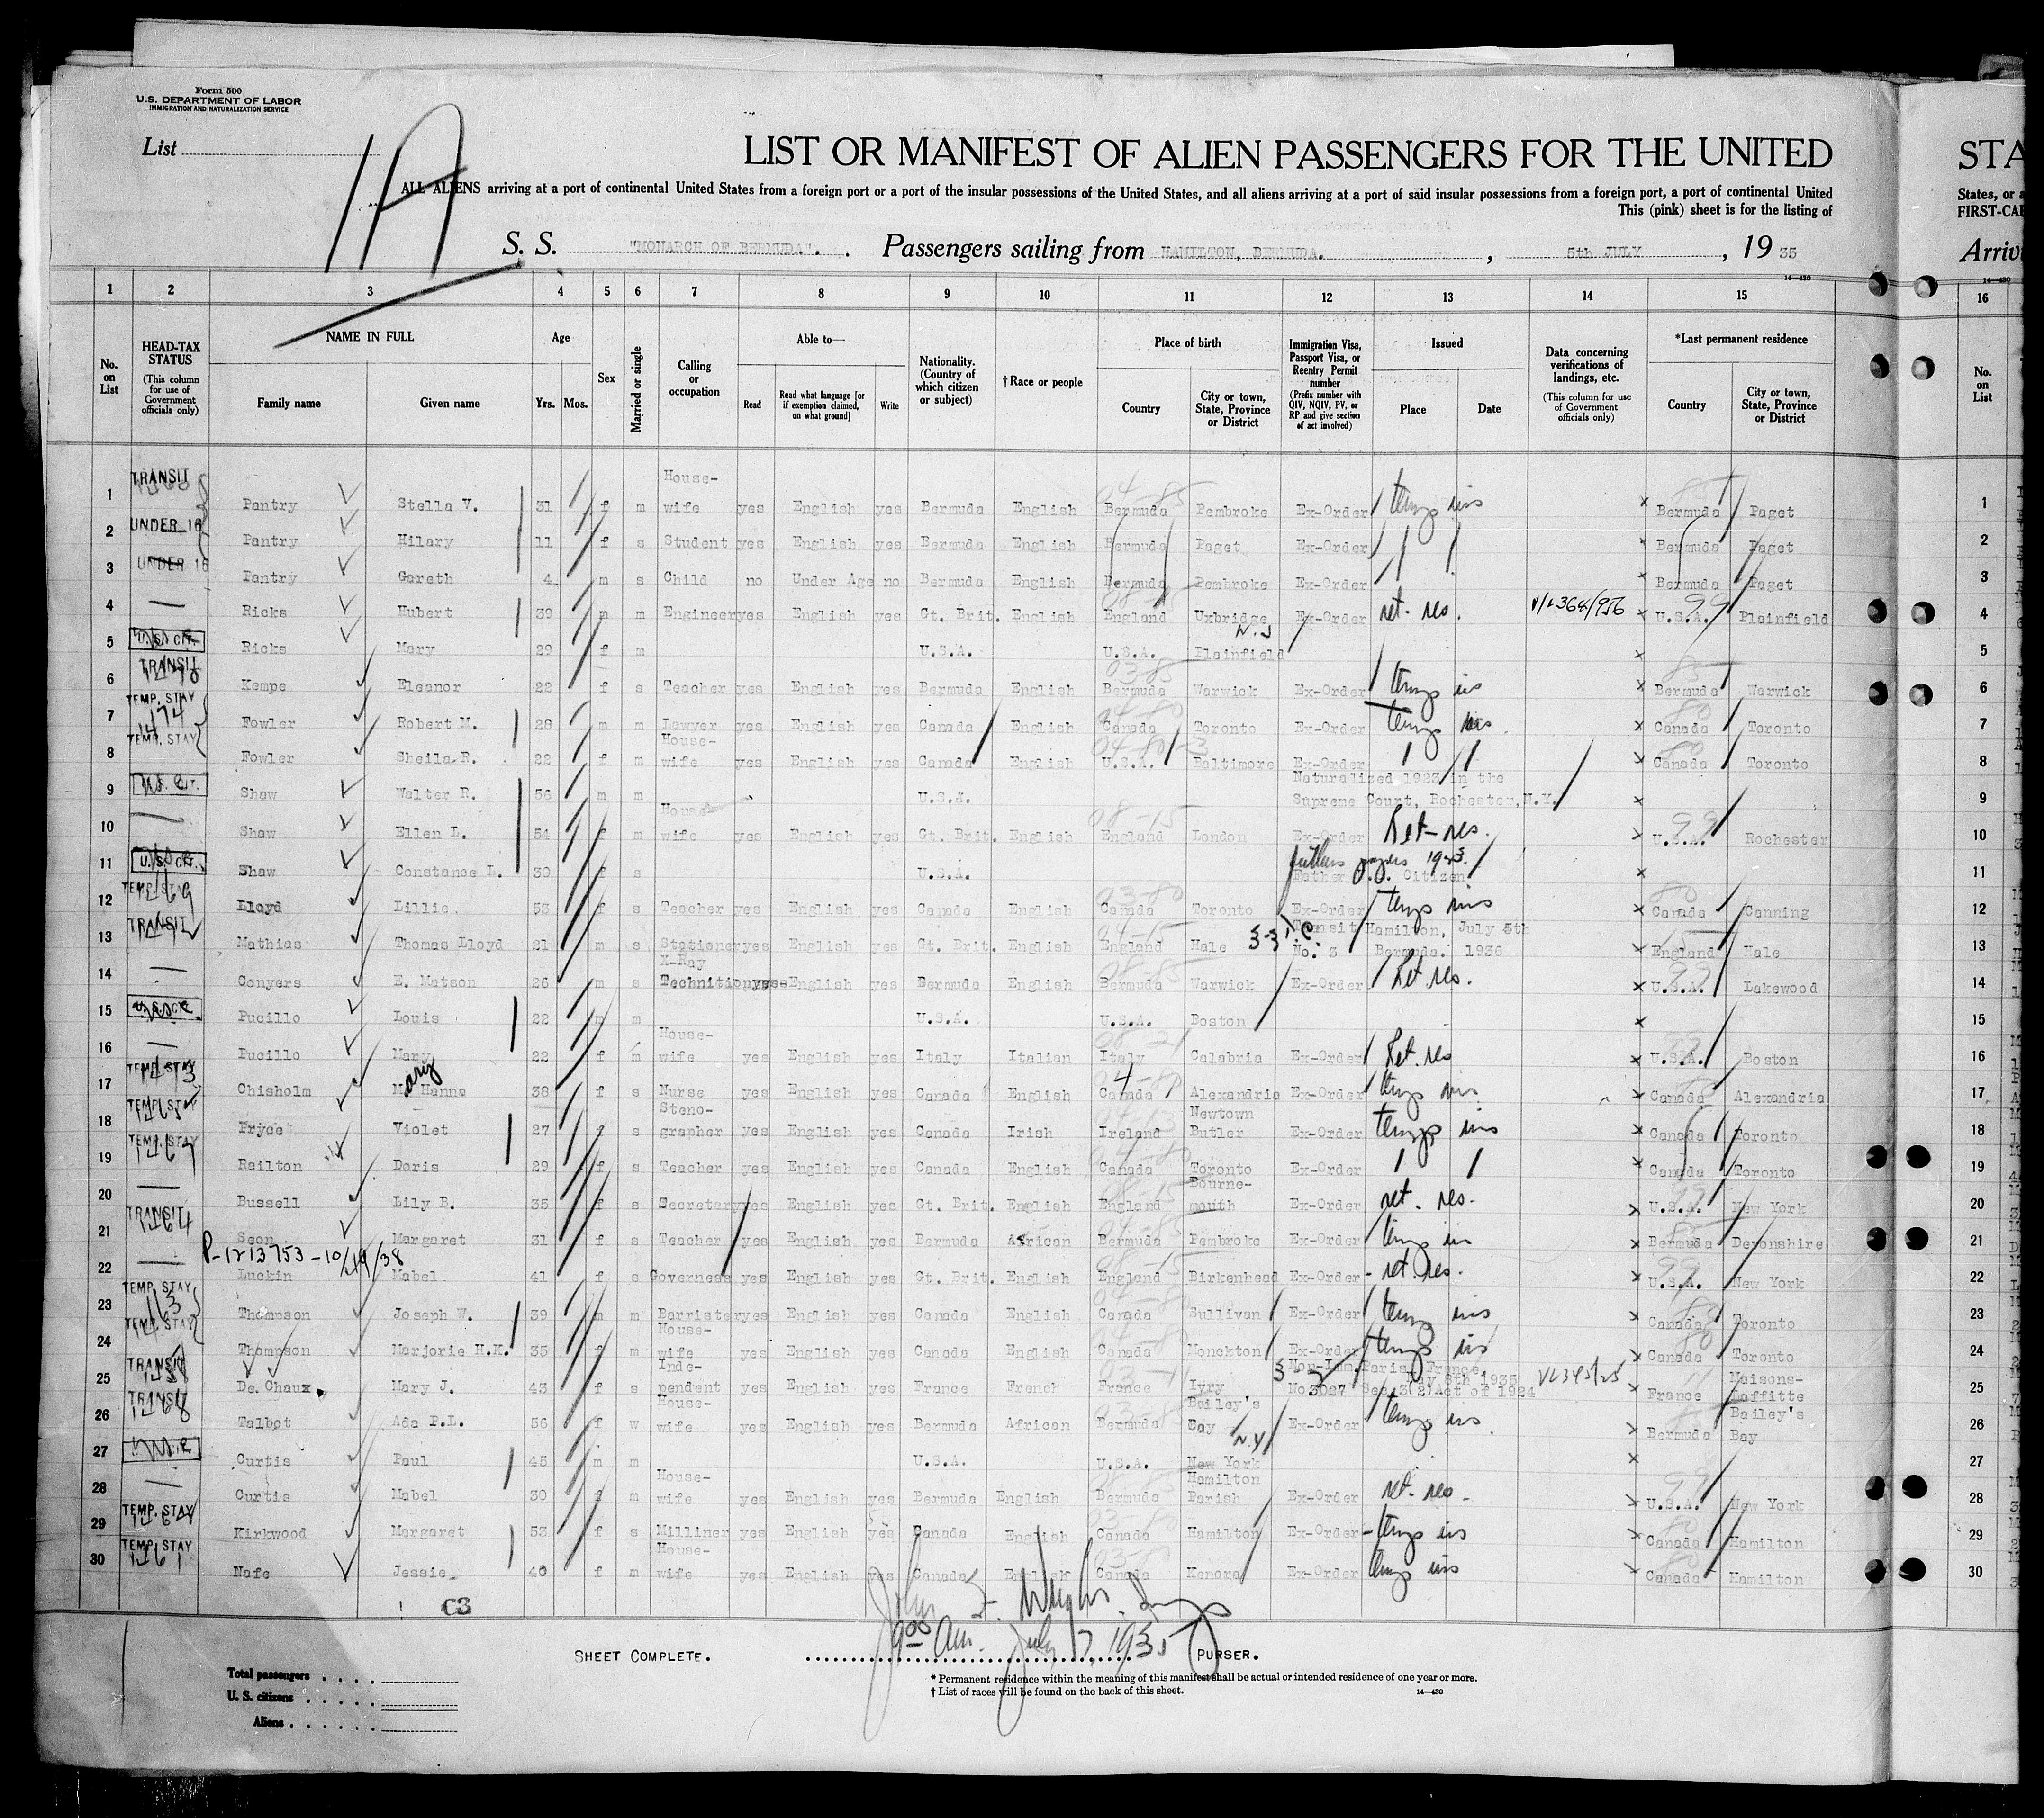 Form 500
U.S. DEPARTMENT OF LABOR
IMMIGRATION AND NATURALIZATION SERVICE
List
1A
LIST OR MANIFEST OF ALIEN PASSENGERS FOR THE UNITED
STA
ALL ALIENS arriving at a port of continental United States from a foreign port or a port of the insular possessions of the United States, and all aliens arriving at a port of said insular possessions from a foreign port, a port of continental United
States, or a
This (pink) sheet is for the listing of
FIRST-CAB
S. S. "MONARCH OF BERMUDA". Passengers sailing from HAMILTON, BERMUDA. , 5th JULY , 19 35
Arriv
14—430
1 2 3 4 5 6 7 8 9 10 11 12 13 14 15 16
No. on List
HEAD-TAX STATUS
(This column for use of Government officials only)
NAME IN FULL
Family name Given name
Age
Yrs. Mos.
Sex
Married or single
Calling or occupation
Able to—
Read
Read what language [or if exemption claimed, on what ground]
Write
Nationality. (Country of which citizen or subject)
†Race or people
Place of birth
Country
City or town, State, Province or District
Immigration Visa, Passport Visa, or Reentry Permit number
(Prefix number with QIV, NQIV, PV, or RP and give section of act involved)
Issued
Place Date
Data concerning verifications of landings, etc.
(This column for use of Government officials only)
*Last permanent residence
Country
City or town, State, Province or District
No. on List
1 TRANSIT Pantry Stella V. 31 f m House-wife yes English yes Bermuda English Bermuda Pembroke Ex-Order Bermuda Paget 1
2 UNDER 16 Pantry Hilary 11 f s Student yes English yes Bermuda English Bermuda Paget Ex-Order Bermuda Paget 2
3 UNDER 16 Pantry Gareth 4 m s Child no Under Age no Bermuda English Bermuda Pembroke Ex-Order Bermuda Paget 3
4 — Ricks Hubert 39 m m Engineer yes English yes Gt. Brit. English England Uxbridge Ex-Order ret. res. U.S.A. Plainfield 4
5 U.S. CIT. Ricks Mary 29 f m U.S.A. U.S.A. Plainfield N.J 5
6 TRANSIT Kempe Eleanor 22 f s Teacher yes English yes Bermuda English Bermuda Warwick Ex-Order Bermuda Warwick 6
7 TEMP. STAY Fowler Robert M. 28 m m Lawyer yes English yes Canada English Canada Toronto Ex-Order Canada Toronto 7
8 TEMP. STAY Fowler Sheila R. 22 f m House-wife yes English yes Canada English U.S.A. Baltimore Ex-Order Canada Toronto 8
9 U.S. CIT. Shaw Walter R. 56 m m U.S.A. Naturalized 1923 in the Supreme Court, Rochester, N.Y. 9
10 — Shaw Ellen L. 54 f m House-wife yes English yes Gt. Brit. English England London Ex-Order Ret-res. U.S.A. Rochester 10
11 U.S. CIT. Shaw Constance L. 30 f s U.S.A. fathers papers 1923. Father Citizen 11
12 TEMP. STAY Lloyd Lillie 53 f s Teacher yes English yes Canada English Canada Toronto Ex-Order Canada Canning 12
13 TRANSIT Mathias Thomas Lloyd 21 m s Stationer yes English yes Gt. Brit. English England Hale Transit No. 3 Hamilton, Bermuda. July 5th 1936 England Hale 13
14 — Conyers E. Matson 26 m s X-Ray Technition yes English yes Bermuda English Bermuda Warwick Ex-Order Ret res. U.S.A. Lakewood 14
15 Pucillo Louis 22 m m U.S.A. U.S.A. Boston 15
16 — Pucillo Mary 22 f m House-wife yes English yes Italy Italian Italy Calabria Ex-Order Ret. res U.S.A. Boston 16
17 TEMP. STAY Chisholm Mary Hanna 38 f s Nurse yes English yes Canada English Canada Alexandria Ex-Order Canada Alexandria 17
18 TEMP. STAY Pryce Violet 27 f s Steno-grapher yes English yes Canada Irish Ireland Newtown Butler Ex-Order Canada Toronto 18
19 TEMP. STAY Railton Doris 29 f s Teacher yes English yes Canada English Canada Toronto Ex-Order Canada Toronto 19
20 — Bussell Lily B. 35 f s Secretary yes English yes Gt. Brit. English England Bourne-mouth Ex-Order ret. res. U.S.A. New York 20
21 TRANSIT Seon Margaret 31 f s Teacher yes English yes Bermuda African Bermuda Pembroke Ex-Order Bermuda Devonshire 21
P-1213753-10/19/38
22 — Luckin Mabel 41 f s Governess yes English yes Gt. Brit. English England Birkenhead Ex-Order - ret. res. U.S.A. New York 22
23 TEMP. STAY Thompson Joseph W. 39 m m Barrister yes English yes Canada English Canada Sullivan Ex-Order Canada Toronto 23
24 TEMP. STAY Thompson Marjorie H.K. 35 f m House-wife yes English yes Canada English Canada Monckton Ex-Order Canada Toronto 24
25 TRANSIT De Chaux Mary J. 43 f s Inde-pendent yes English yes France French France Ivry Non-Imm. No 3027 Paris, France, 8th 1935 Sec. 3(2) Act of 1924 France Maisons-Laffitte 25
26 TRANSIT Talbot Ada P.L. 56 f w House-wife yes English yes Bermuda African Bermuda Bailey's Bay Ex-Order Bermuda Bailey's Bay 26
27 Curtis Paul 45 m m U.S.A. U.S.A. New York N.Y 27
28 — Curtis Mabel 30 f m House-wife yes English yes Bermuda English Bermuda Hamilton Parish Ex-Order ret. res. U.S.A. New York 28
29 TEMP. STAY Kirkwood Margaret 53 f s Milliner yes English yes Canada English Canada Hamilton Ex-Order Canada Hamilton 29
30 TEMP. STAY Nafe Jessie 40 f m House-wife yes English yes Canada English Canada Kenora Ex-Order Canada Hamilton 30
C3
9:00 Am. July 7, 1935
SHEET COMPLETE. PURSER.
Total passengers
U. S. citizens
Aliens
* Permanent residence within the meaning of this manifest shall be actual or intended residence of one year or more.
† List of races will be found on the back of this sheet.
14—430